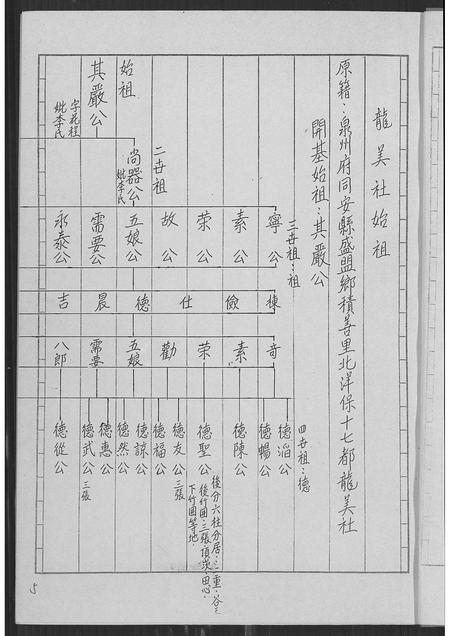 龍美社始祖
原籍：泉州府同安縣盛盟鄉積善里北洋保十七都龍美社
開基始祖：其嚴公
始祖
其嚴公
字苑程
妣李氏
二世祖
尚器公
妣李氏
三世祖：祖
寧公
素公
荣公
故公
五娘公
需要公
永泰公
棟
儉
仕
德
晨
吉
奇
素
荣
勸
五娘
需要
八郎
四世祖：德
德滔公
德暢公
德陳公
德聖公
後分六柱分居：三重：谷
後竹囲：三張
下竹囲等地．
德友公
三張
德福公
德諒公
德然公
德惠公
德武公
三張
德從公
5